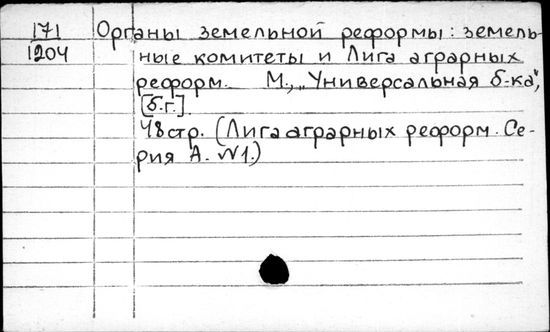 171 Органы земельной реформы: земель-
1204 ные комитеты и Лига аграрных
реформ. М., „Универсальная б-ка",
[б.г.].
48 стр. (Лига аграрных реформ. Се-
рия А. №1.)